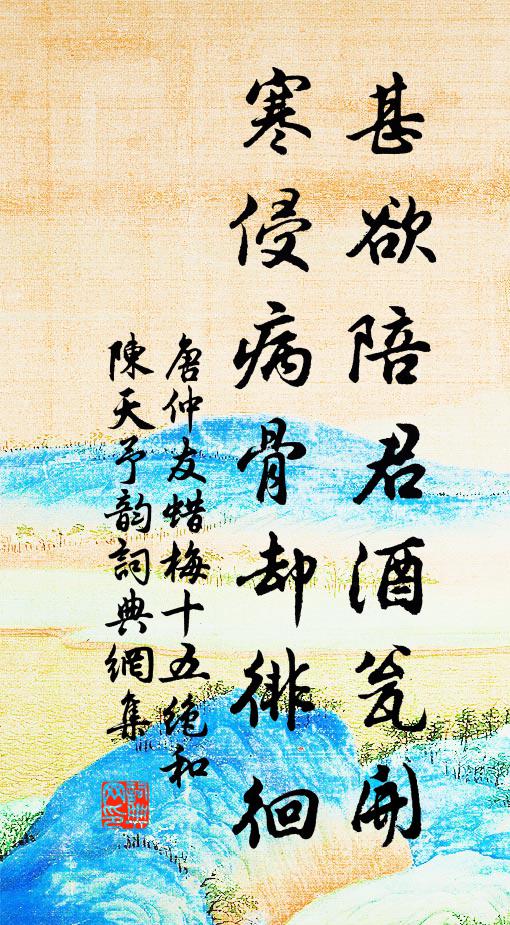 甚欲陪君酒瓮開
寒侵病骨却徘徊
唐仲友蜡梅十五绝和
陳天予韵詞典網集